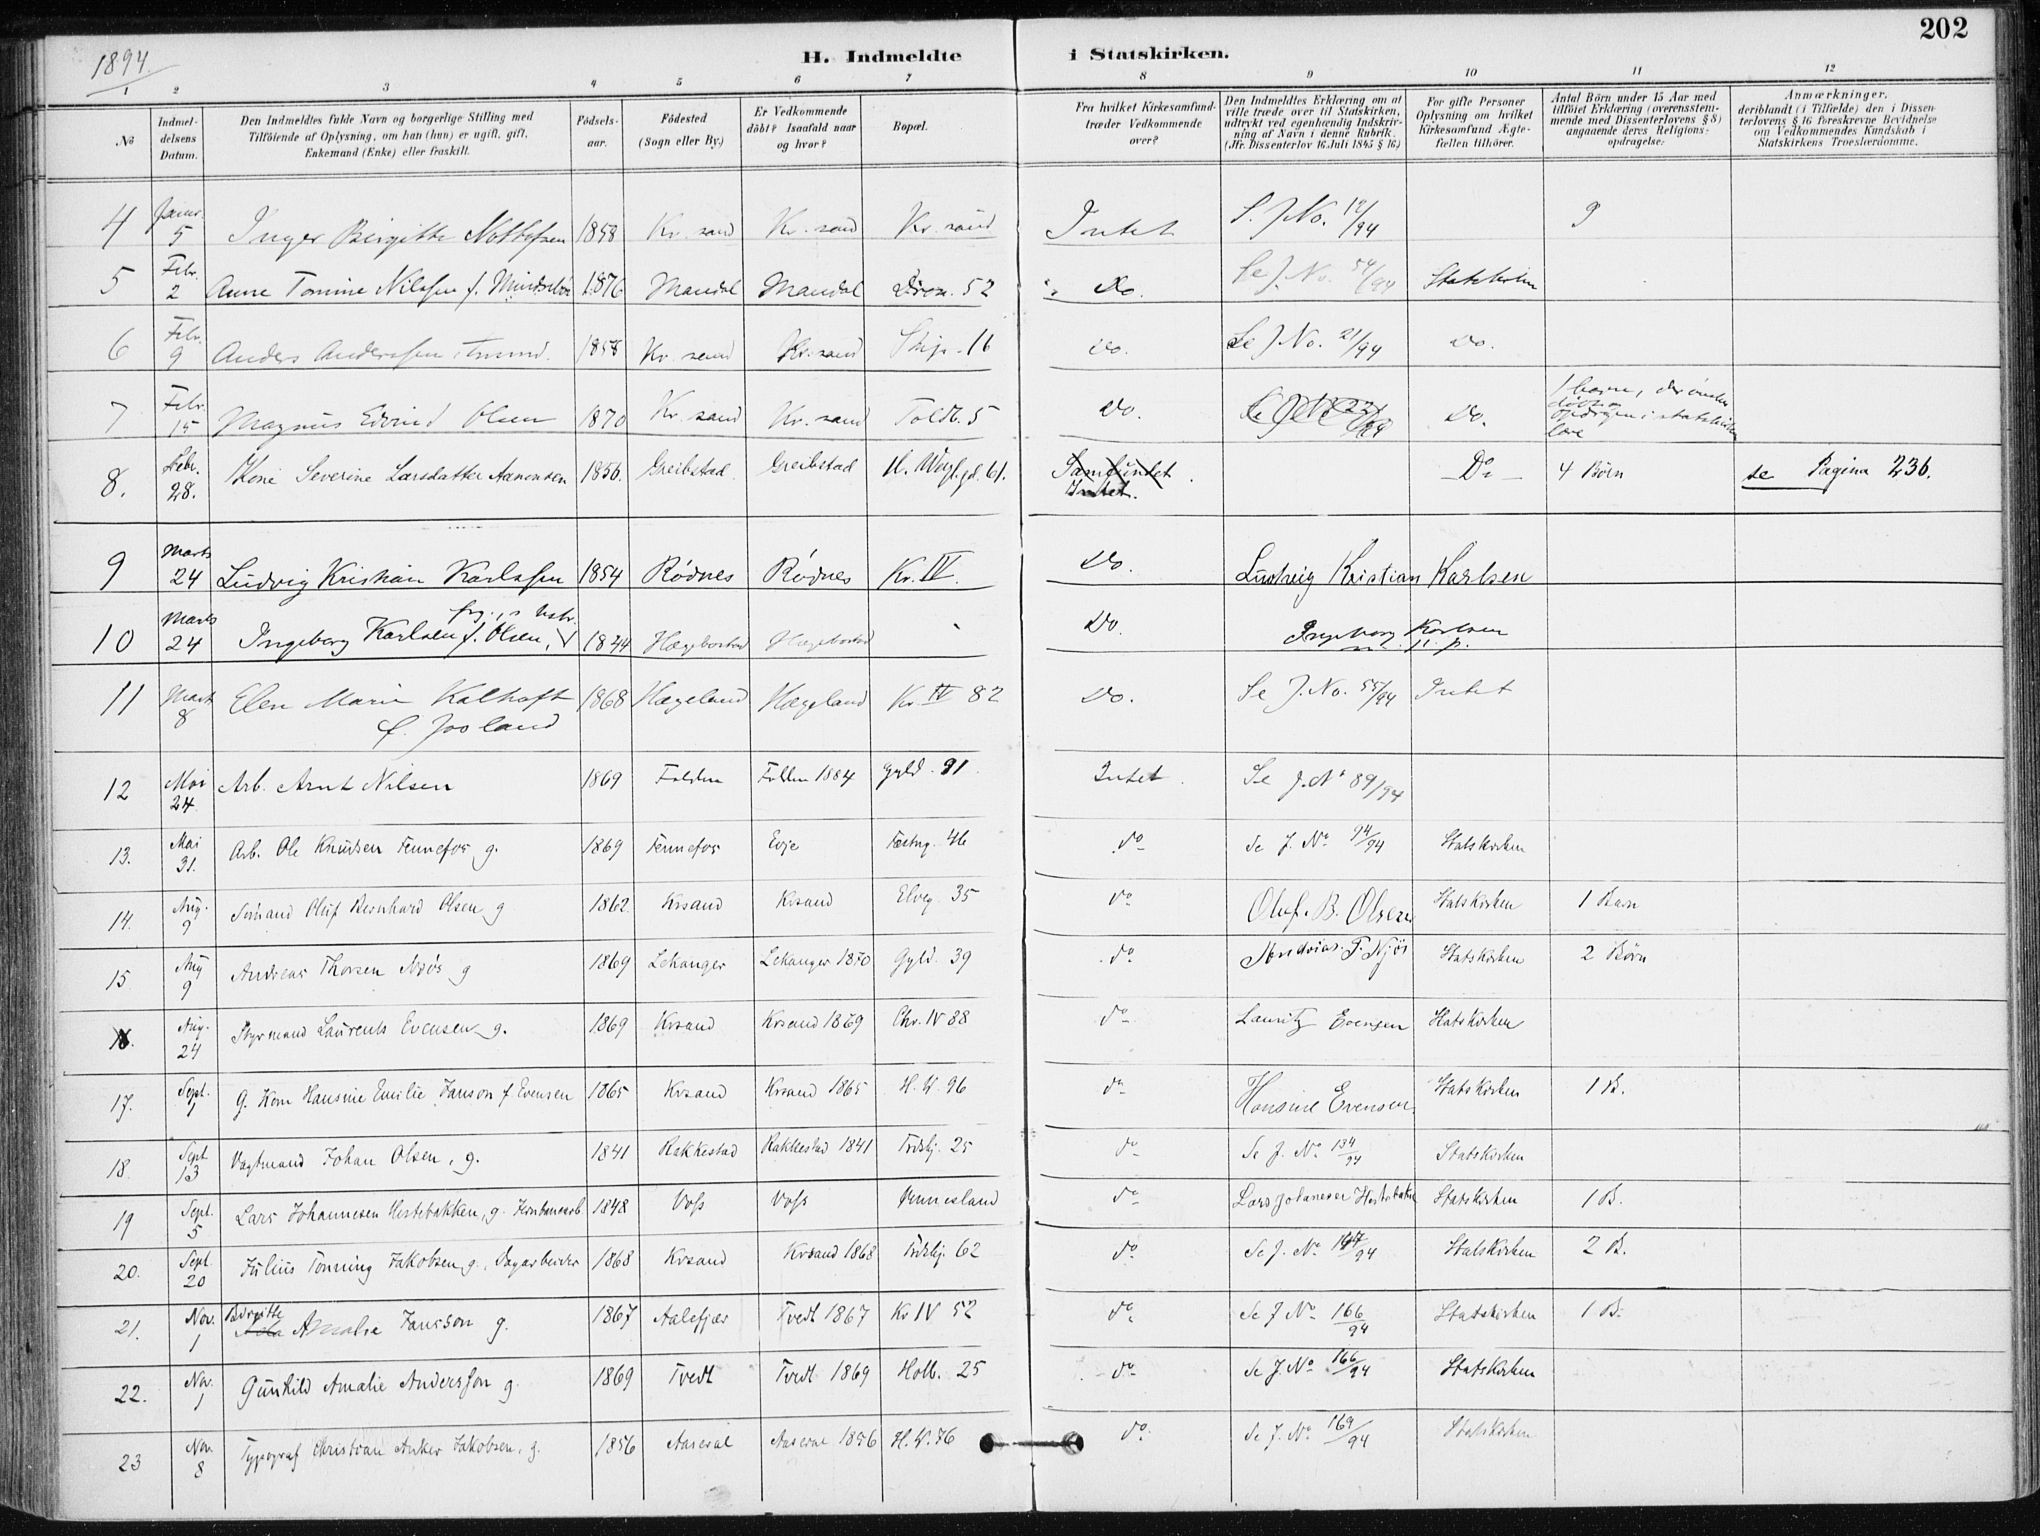 202
1894
H. Indmeldte i Statskirken.
1 2 3 4 5 6 7 8 9 10 11 12
No
Indmel-
delsens
Datum.
Den Indmeldtes fulde Navn og borgerlige Stilling med
Tilföiende af Oplysning, om han (hun) er ugift, gift,
Enkemand (Enke) eller fraskilt.
Födsels-
aar.
Födested
(Sogn eller By.)
Er Vedkommende
döbt? Isaafald naar
og hvor?
Bopæl.
Fra hvilket Kirkesamfund
træder Vedkommende
over?
Den Indmeldtes Erklæring om at
ville træde over til Statskirken,
udtrykt ved egenhændig Indskriv-
ning af Navn i denne Rubrik.
(Jfr. Dissenterlov 16 Juli 1845 § 16.)
For gifte Personer
Oplysning om hvilket
Kirkesamfund Ægte-
fællen tilhörer.
Antal Börn under 15 Aar med
tilföiet Erklæring (overensstem-
mende med Dissenterlovens § 8)
angaaende deres Religions-
opdragelse:
Anmærkninger.
deriblandt (i Tilfælde) den i Dissen-
terlovens § 16 foreskrevne Bevidnelse
om Vedkommendes Kundskab i
Statskirkens Troeslærdomme.
4 Januar 5 Inger Birgitte 1858 Kr. sand Kr. sand Kr. sand Intet S. J No. 12/94
5 Febr. 2 Anne Tomine Nilssen f. 1876 Mandal Mandal Dron. 52 Do. Se J. No. 54/94 Statskirken
6 Febr. 9 Anders Anderssen 1858 Kr. sand Kr. sand Skip. 16 Do. Se J No. 21/94 Do.
7 Febr. 15 Magnus Edvind Olsen 1870 Kr. sand Kr. sand Toldb. 5 Do. Do.
8. Febr. 28. Kone Severine Larsdatter Aanonsen 1856. Greibstad Greibstad Samfundet Intet. Do 4 Børn se Pagina 236.
9 Marts 24 Ludvig Kristian Karlssen 1854 Rødnes Rødnes Kr. IV. Do. Ludvig Kristian Karlsen
10 Marts 24 Ingeborg Karlsen f. Olsen, 1844 Hægebostad Hægebostad Do. Ingeborg Karlsen m. p. p.
11 Marts 8 Elen Marie Kalhoft f. Josland 1868 Hægeland Hægeland Kr. IV 82 Do. Se J. No. 55/94 Intet
12 Mai 24. Arb. Arnt Nilsen 1869 Folden Folden 1884 Gyld. 91 Intet. Se J. No 89/94
13. Mai 31. Arb. Ole Knudsen Fennefos g. 1869 Fennefos Evje Festng. 46 do Se J. No 94/94 Statskirken
14. Aug. 9 Sømand Oluf Bernhard Olsen g 1862 Krsand Krsand Elveg. 35 do Oluf. B. Olsen Statskirken 1 Barn
15 Aug 9 Andreas Thorsen Njøs g 1869 Lekanger Lekanger 1870 Gyld. 39 do Andreas T. Njøs Statskirken 2 Børn
16. Aug. 24 Styrmand Laurents Evensen g. 1869 Krsand Krsand 1869 Chr. IV 88 do Lauritz Evensen Statskirken
17. Sept. 1 G. Kone Hansine Emilie Janson f Evensen 1865 Krsand Krsand 1865 H. W. 96 do Hansine Evensen Statskirken 1 B.
18. Sept 13 Vagtmand Johan Olsen, g. 1841 Rakkestad Rakkestad 1841 Tordskj. 25 do Se J. No 134/94 Statskirken
19 Sept. 5 Lars Johannesen Hestebakken, g. Jernbanearb 1848 Voss Voss Vennesland do Lars Johanesen Hestebakke Statskirken 1 B.
20. Sept. 20 Julius Tønning Jakobsen g. Dagarbeider 1868 Krsand Krsand 1868 Tordskj. 62 do Se J. No 147/94 Statskirken 2 B.
21. Nov. 1 Birgitte Amalie Jansson g. 1867 Aalefjær Tvedt 1867 Kr IV 52 do Se J No 166/94 Statskirken 1 B.
22. Nov. 1 Gunhild Amalie Andersson g. 1869 Tvedt Tvedt 1869 Holb. 25 do Se J. No 166/94 Statskirken
23 Nov. 8 Typograf Christian Anker Jakobsen, g. 1856 Aaseral Aaseral 1856 H. W. 76 do. Se J. No 169/94 Statskirken